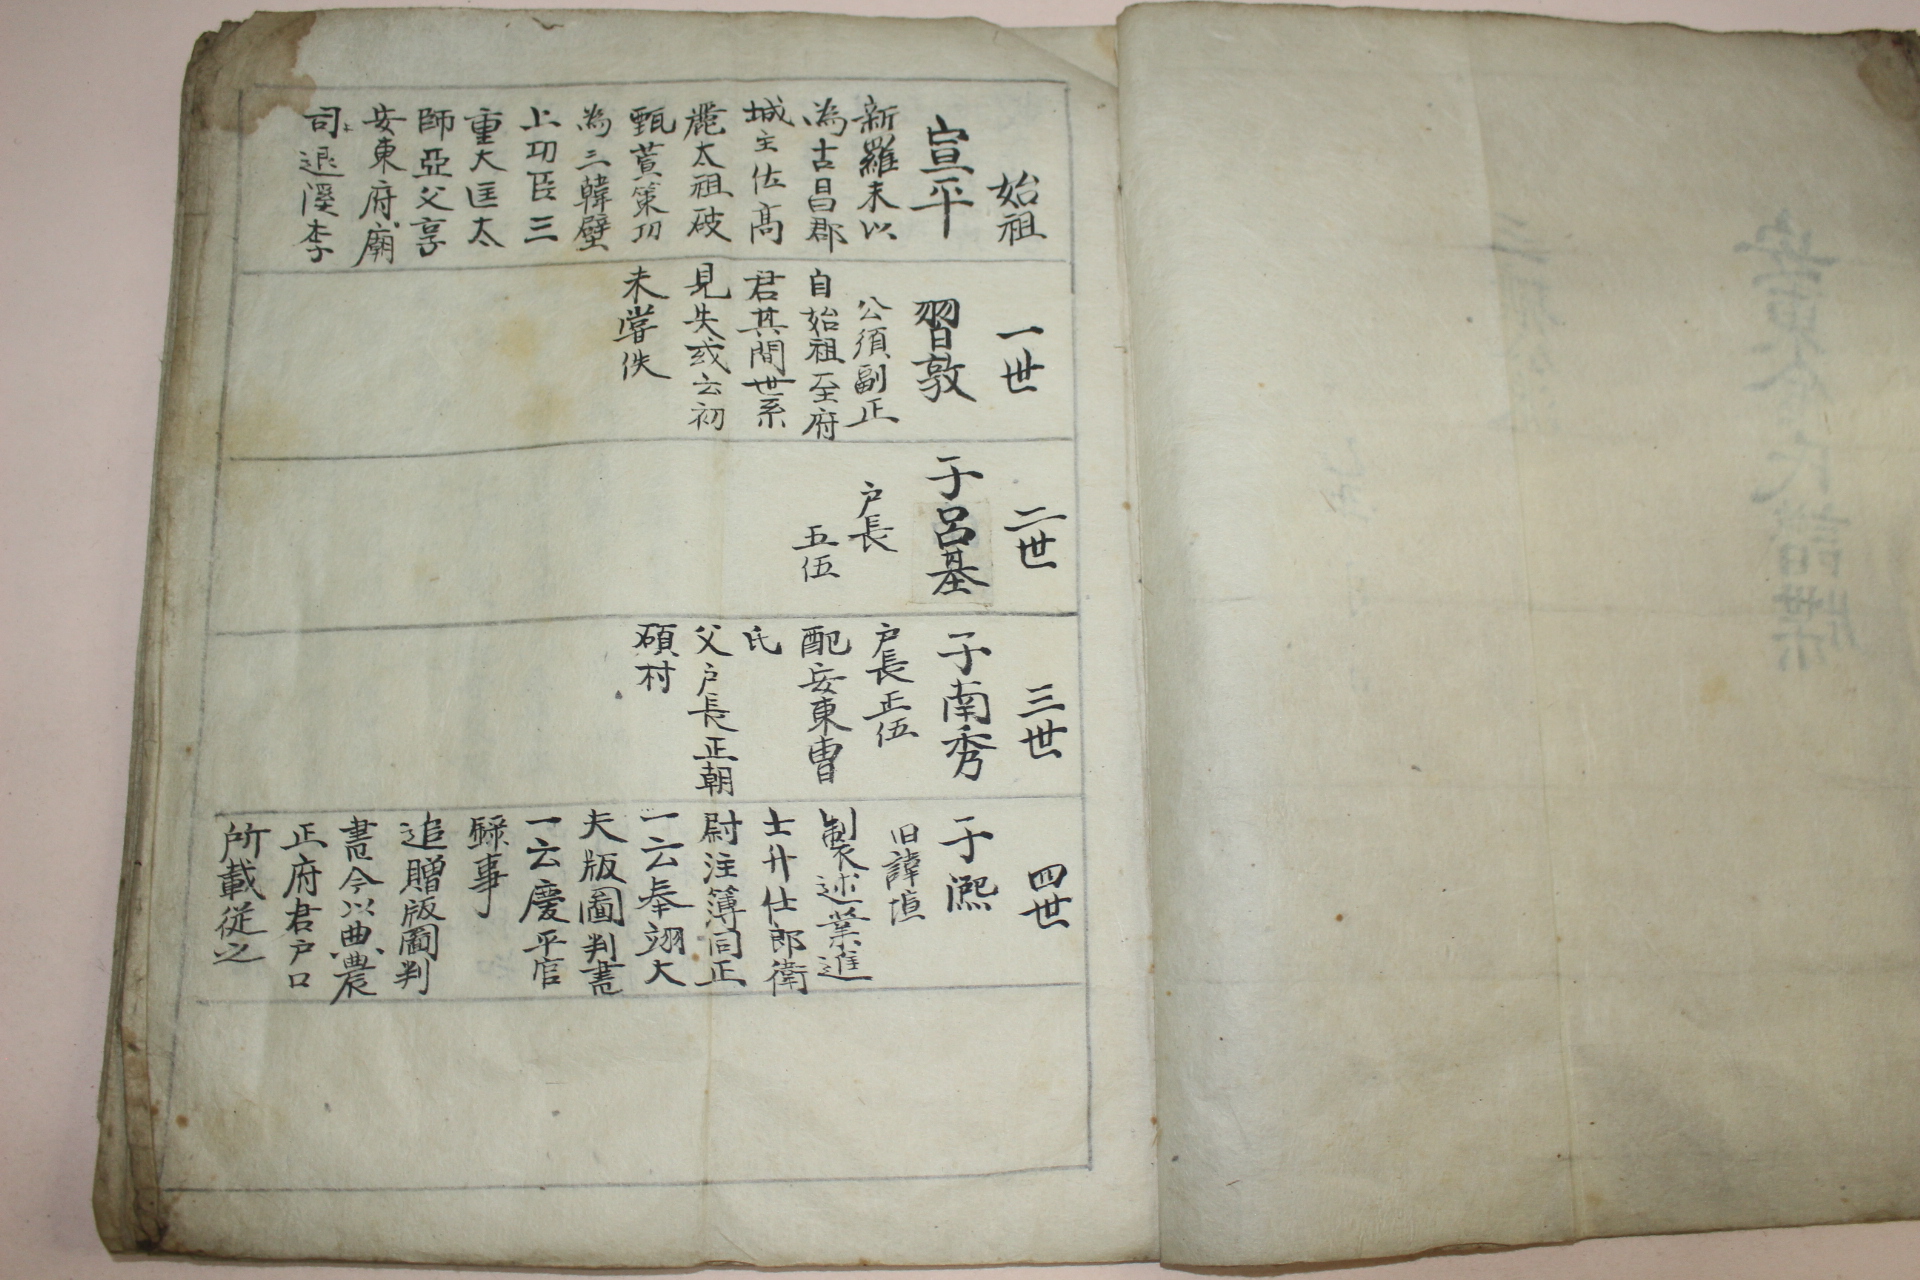 始祖
宣平
新羅末以
為古昌郡
城主佐高
麗太祖破
甄萱策功
為三韓壁
上功臣三
重大匡太
師亞父享
安東府廟
司退溪李
一世
習敦
公須副正
自始祖至府
君其間世系
見失或云初
未嘗佚
二世
子呂基
户長
五伍
三世
子南秀
户長正伍
配安東曹
氏
父户長正朝
碩村
四世
子凞
旧諱
製述業進
士升仕郎衛
尉注簿同正
一云奉翊大
夫版圖判書
一云慶平官
錄事
追贈版圖判
書今以典農
正府君户口
所載從之
安東金氏譜牒